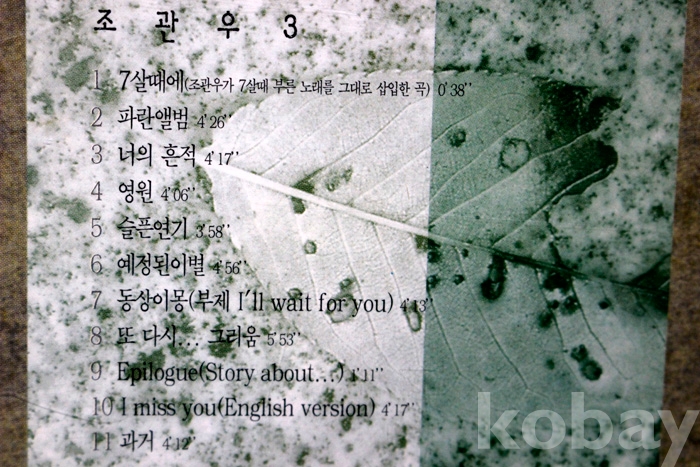 조 관 우 3
1 7살때에(조관우가 7살때 부른 노래를 그대로 삽입한 곡) 0'38''
2 파란앨범 4'26''
3 너의 흔적 4'17''
4 영원 4'06''
5 슬픈연기 3'58''
6 예정된이별 4'56''
7 동상이몽(부제 I'll wait for you) 4'13''
8 또 다시... 그리움 5'53''
9 Epilogue(Story about...) 1'11''
10 I miss you(English version) 4'17''
11 과거 4'12''
kobay